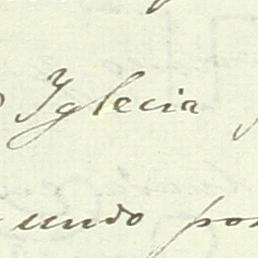 Iglecia
undo por